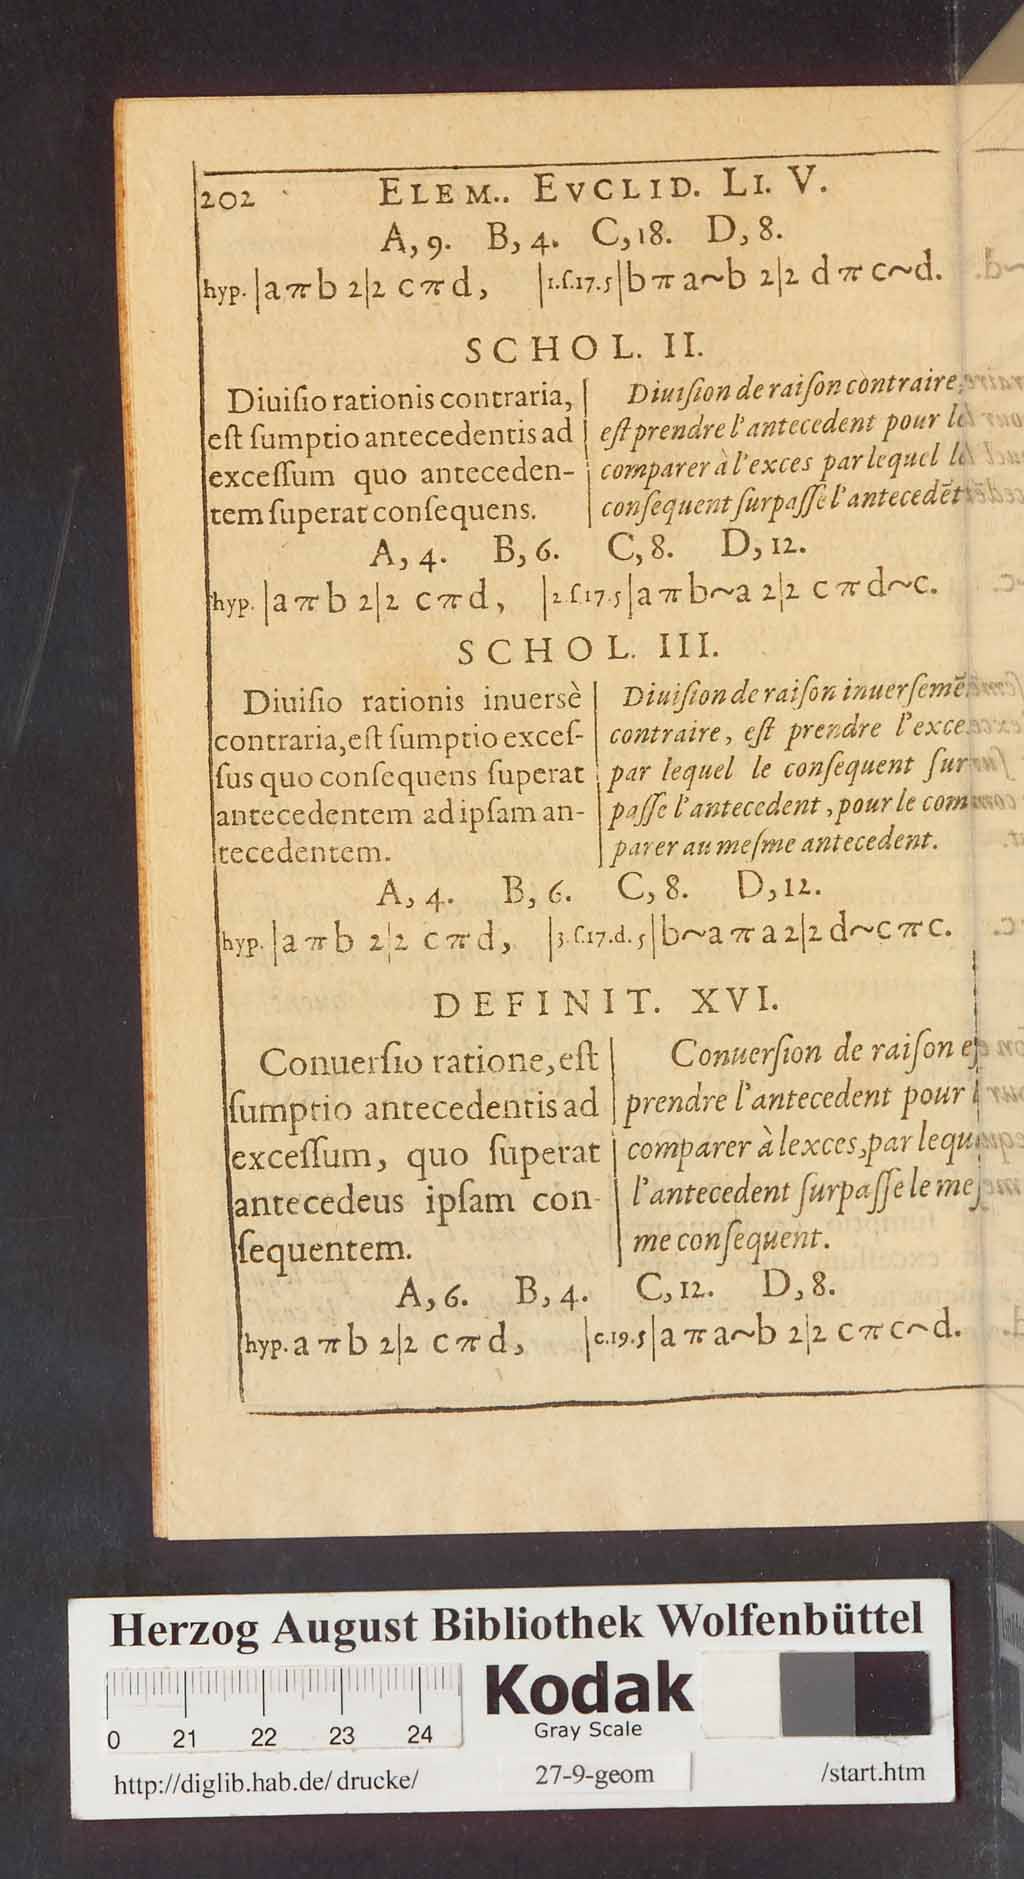 202 ELEM.. EVCLID. LI. V.
A, 9. B, 4. C, 18. D, 8.
hyp. |a π b 2|2 c π d, |1.ſ.17.5| b π a~b 2|2 d π c~d.
SCHOL. II.
Diuiſio rationis contraria,
eſt ſumptio antecedentis ad
exceſſum quo anteceden-
tem ſuperat conſequens.
Diuiſion de raiſon contraire,
eſt prendre l'antecedent pour le
comparer à l'exces par lequel le
conſequent ſurpaſſe l'antecedēt
A, 4. B, 6. C, 8. D, 12.
hyp. |a π b 2|2 c π d, |2.ſ.17.5| a π b~a 2|2 c π d~c.
SCHOL. III.
Diuiſio rationis inuersè
contraria, eſt ſumptio exceſ-
ſus quo conſequens ſuperat
antecedentem ad ipſam an-
tecedentem.
Diuiſion de raiſon inuerſemē
contraire, eſt prendre l'exce
par lequel le conſequent ſur
paſſe l'antecedent, pour le com
parer au meſme antecedent.
A, 4. B, 6. C, 8. D, 12.
hyp. |a π b 2|2 c π d, |3.ſ.17.d.5| b~a π a 2|2 d~c π c.
DEFINIT. XVI.
Conuerſio ratione, eſt
ſumptio antecedentis ad
exceſſum, quo ſuperat
antecedeus ipſam con-
ſequentem.
Conuerſion de raiſon eſ
prendre l'antecedent pour l
comparer à lexces, par lequ
l'antecedent ſurpaſſe le meſ
me conſequent.
A, 6. B, 4. C, 12. D, 8.
hyp. a π b 2|2 c π d, |c.19.5| a π a~b 2|2 c π c~d.
Herzog August Bibliothek Wolfenbüttel
0 21 22 23 24
Kodak
Gray Scale
http://diglib.hab.de/drucke/ 27-9-geom /start.htm